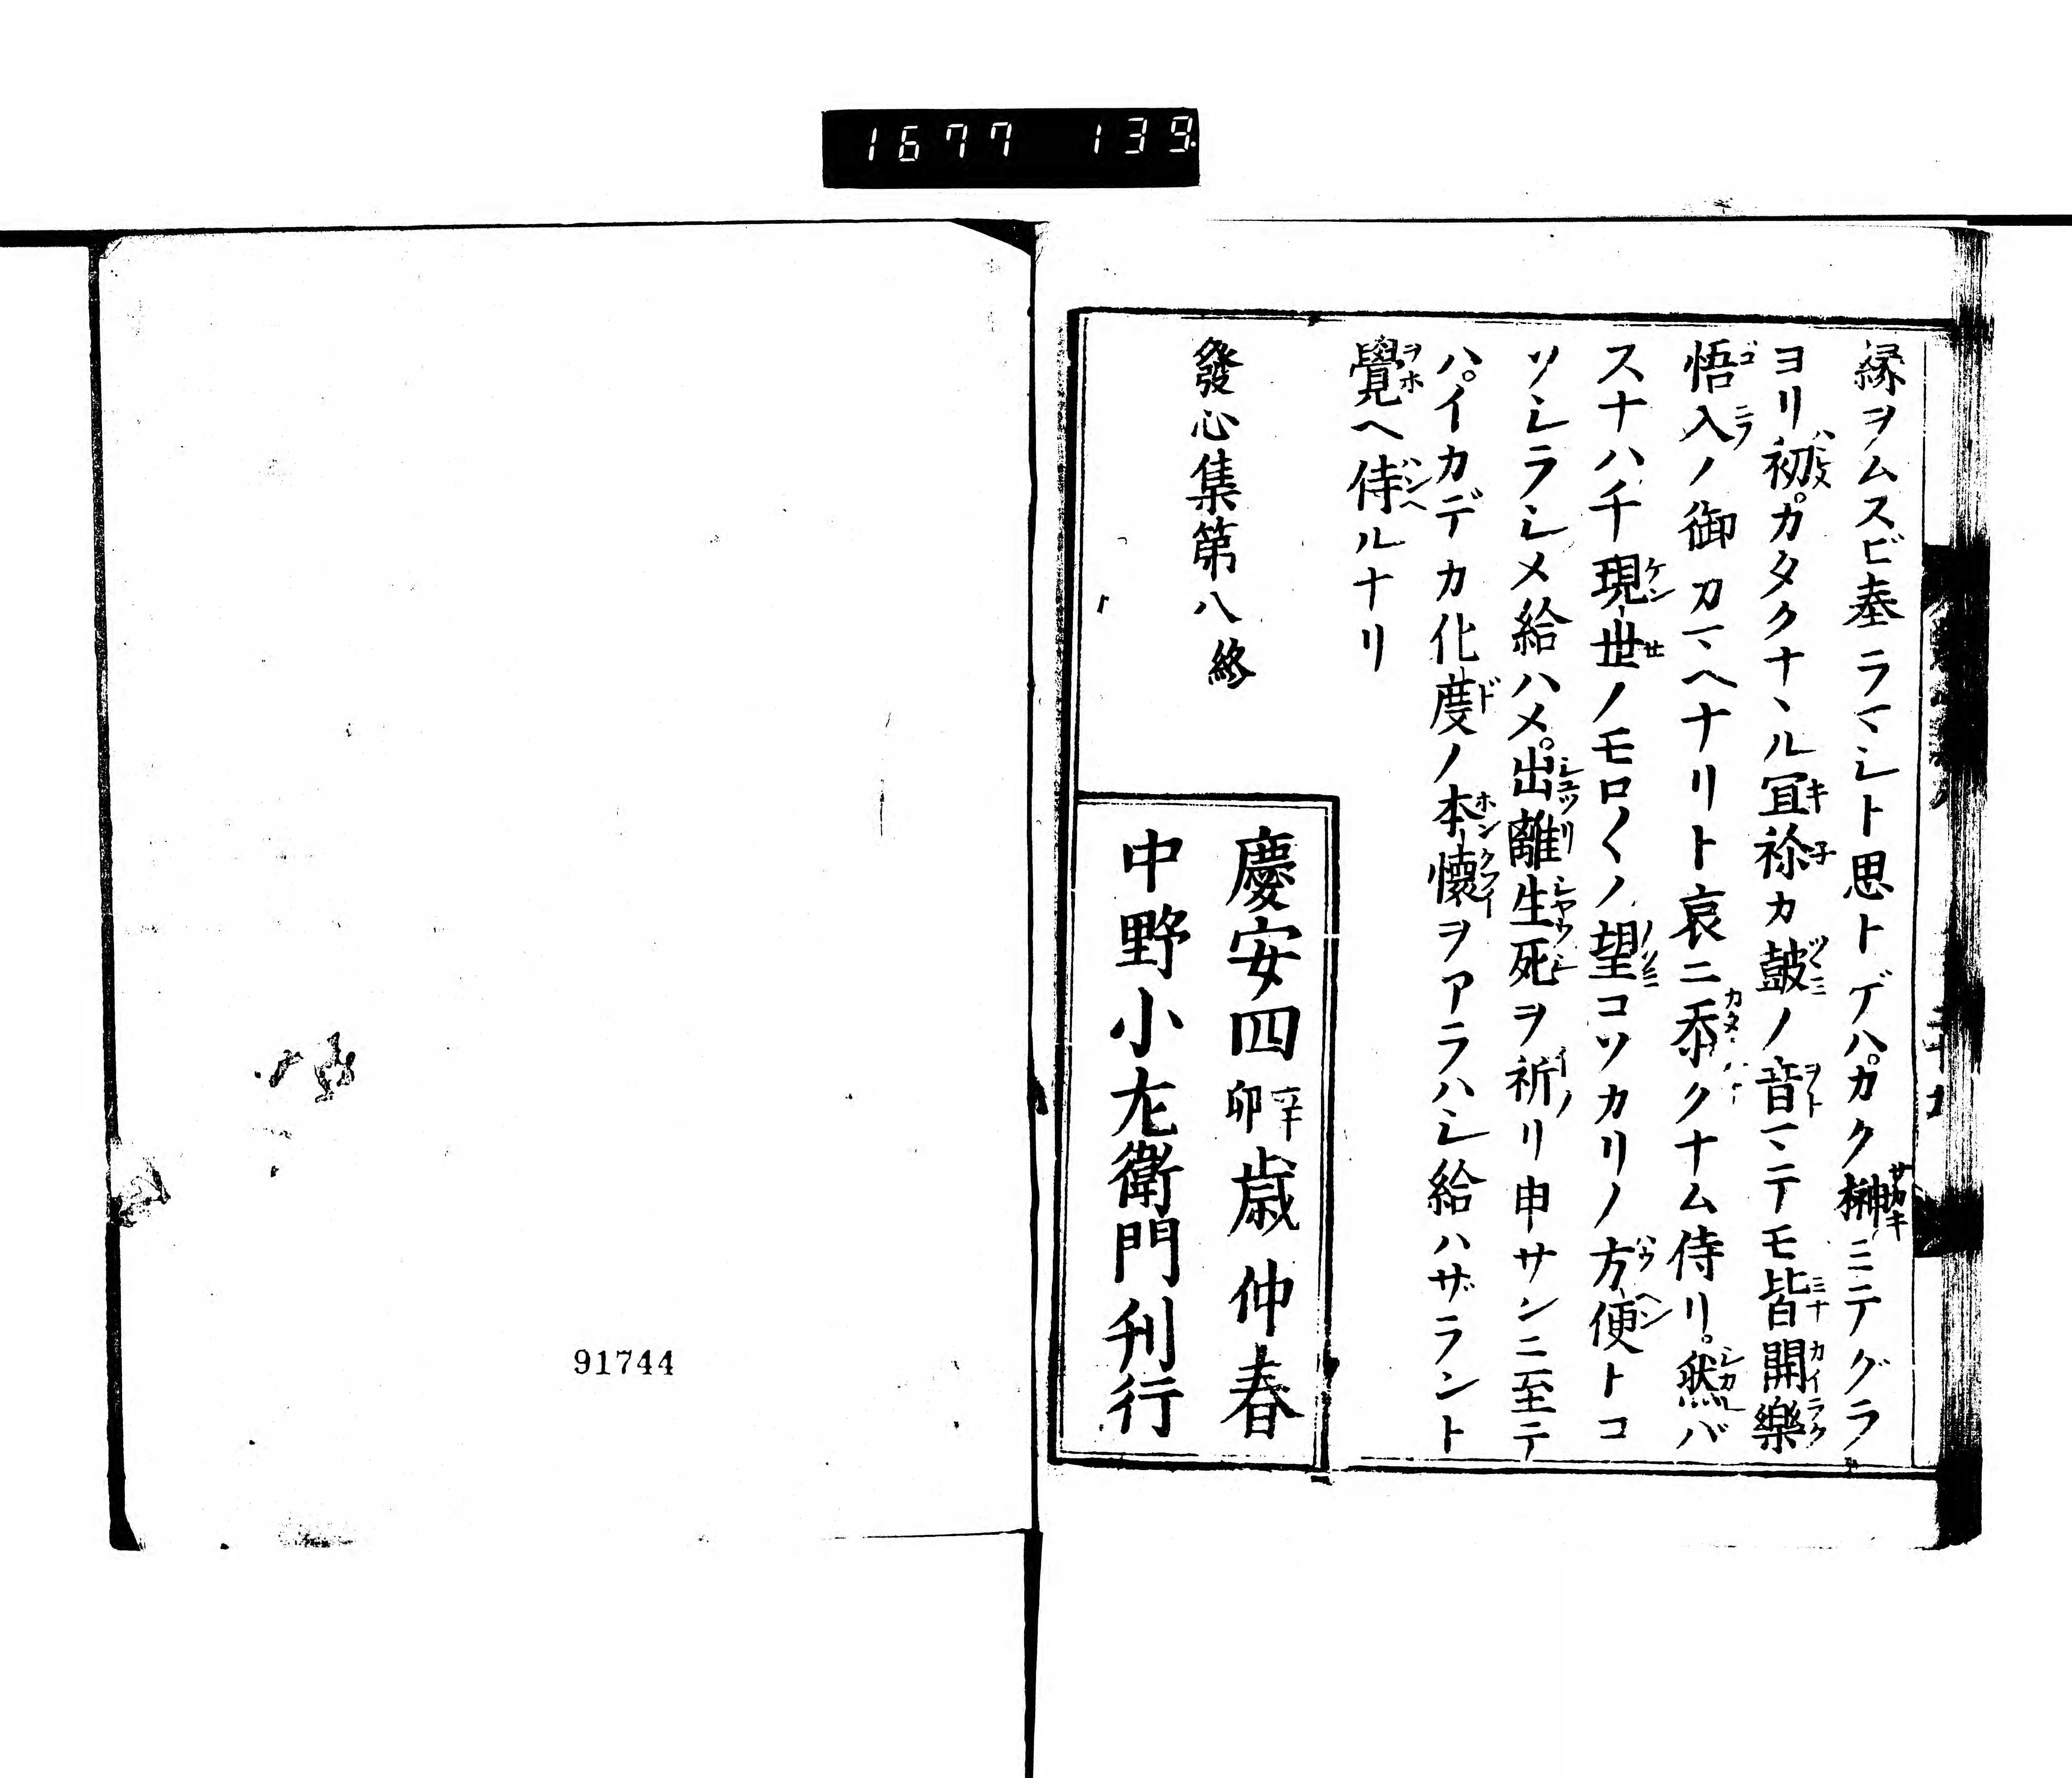 1677 139
縁ヲムスビ奉ラマシト思トデハ。カク榊ニテグラ
ヨリ初。カタクナヽル冝祢カ皷ノ音マテモ皆開樂
悟入ノ御カマヘナリト哀ニ忝クナム侍リ。然バ
スナハチ現世ノモロ〱ノ望コソカリノ方便トコ
ソシラシメ給ハメ。出離生死ヲ祈リ申サンニ至テ
ハ。イカデカ化度ノ本懐ヲアラハシ給ハザラント
覺ヘ侍ルナリ
發心集第八終
慶安四辛卯歳仲春
中野小左衛門刊行
91744